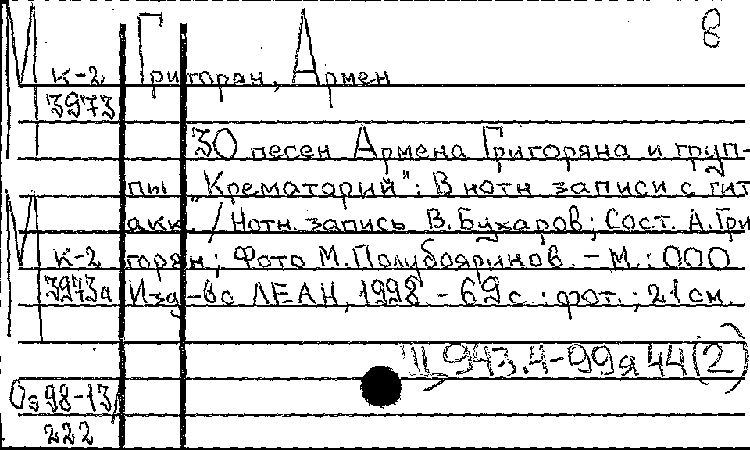 8
М
к-2
3973
Григорян, Армен
30 песен Армена Григоряна и груп-
пы „Крематорий": В нотн. записи с гит
акк. / Нотн. запись В. Бухаров; Сост. А. Гри
М
к-2
3973а
горян; Фото М. Полубояринов. - М.: ООО
Изд-во ЛЕАН, 1998 - 69 с.: фот.; 21 см.
Щ943.4-99я44(2)
Оз 98-13/
222